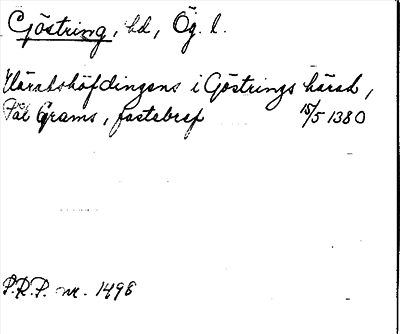 Göstring, hd, Ög. l.
Häradshöfdingens i Göstrings härad,
Pål Grams, fastebref 15/5 1380
P.R.P. nr. 1498